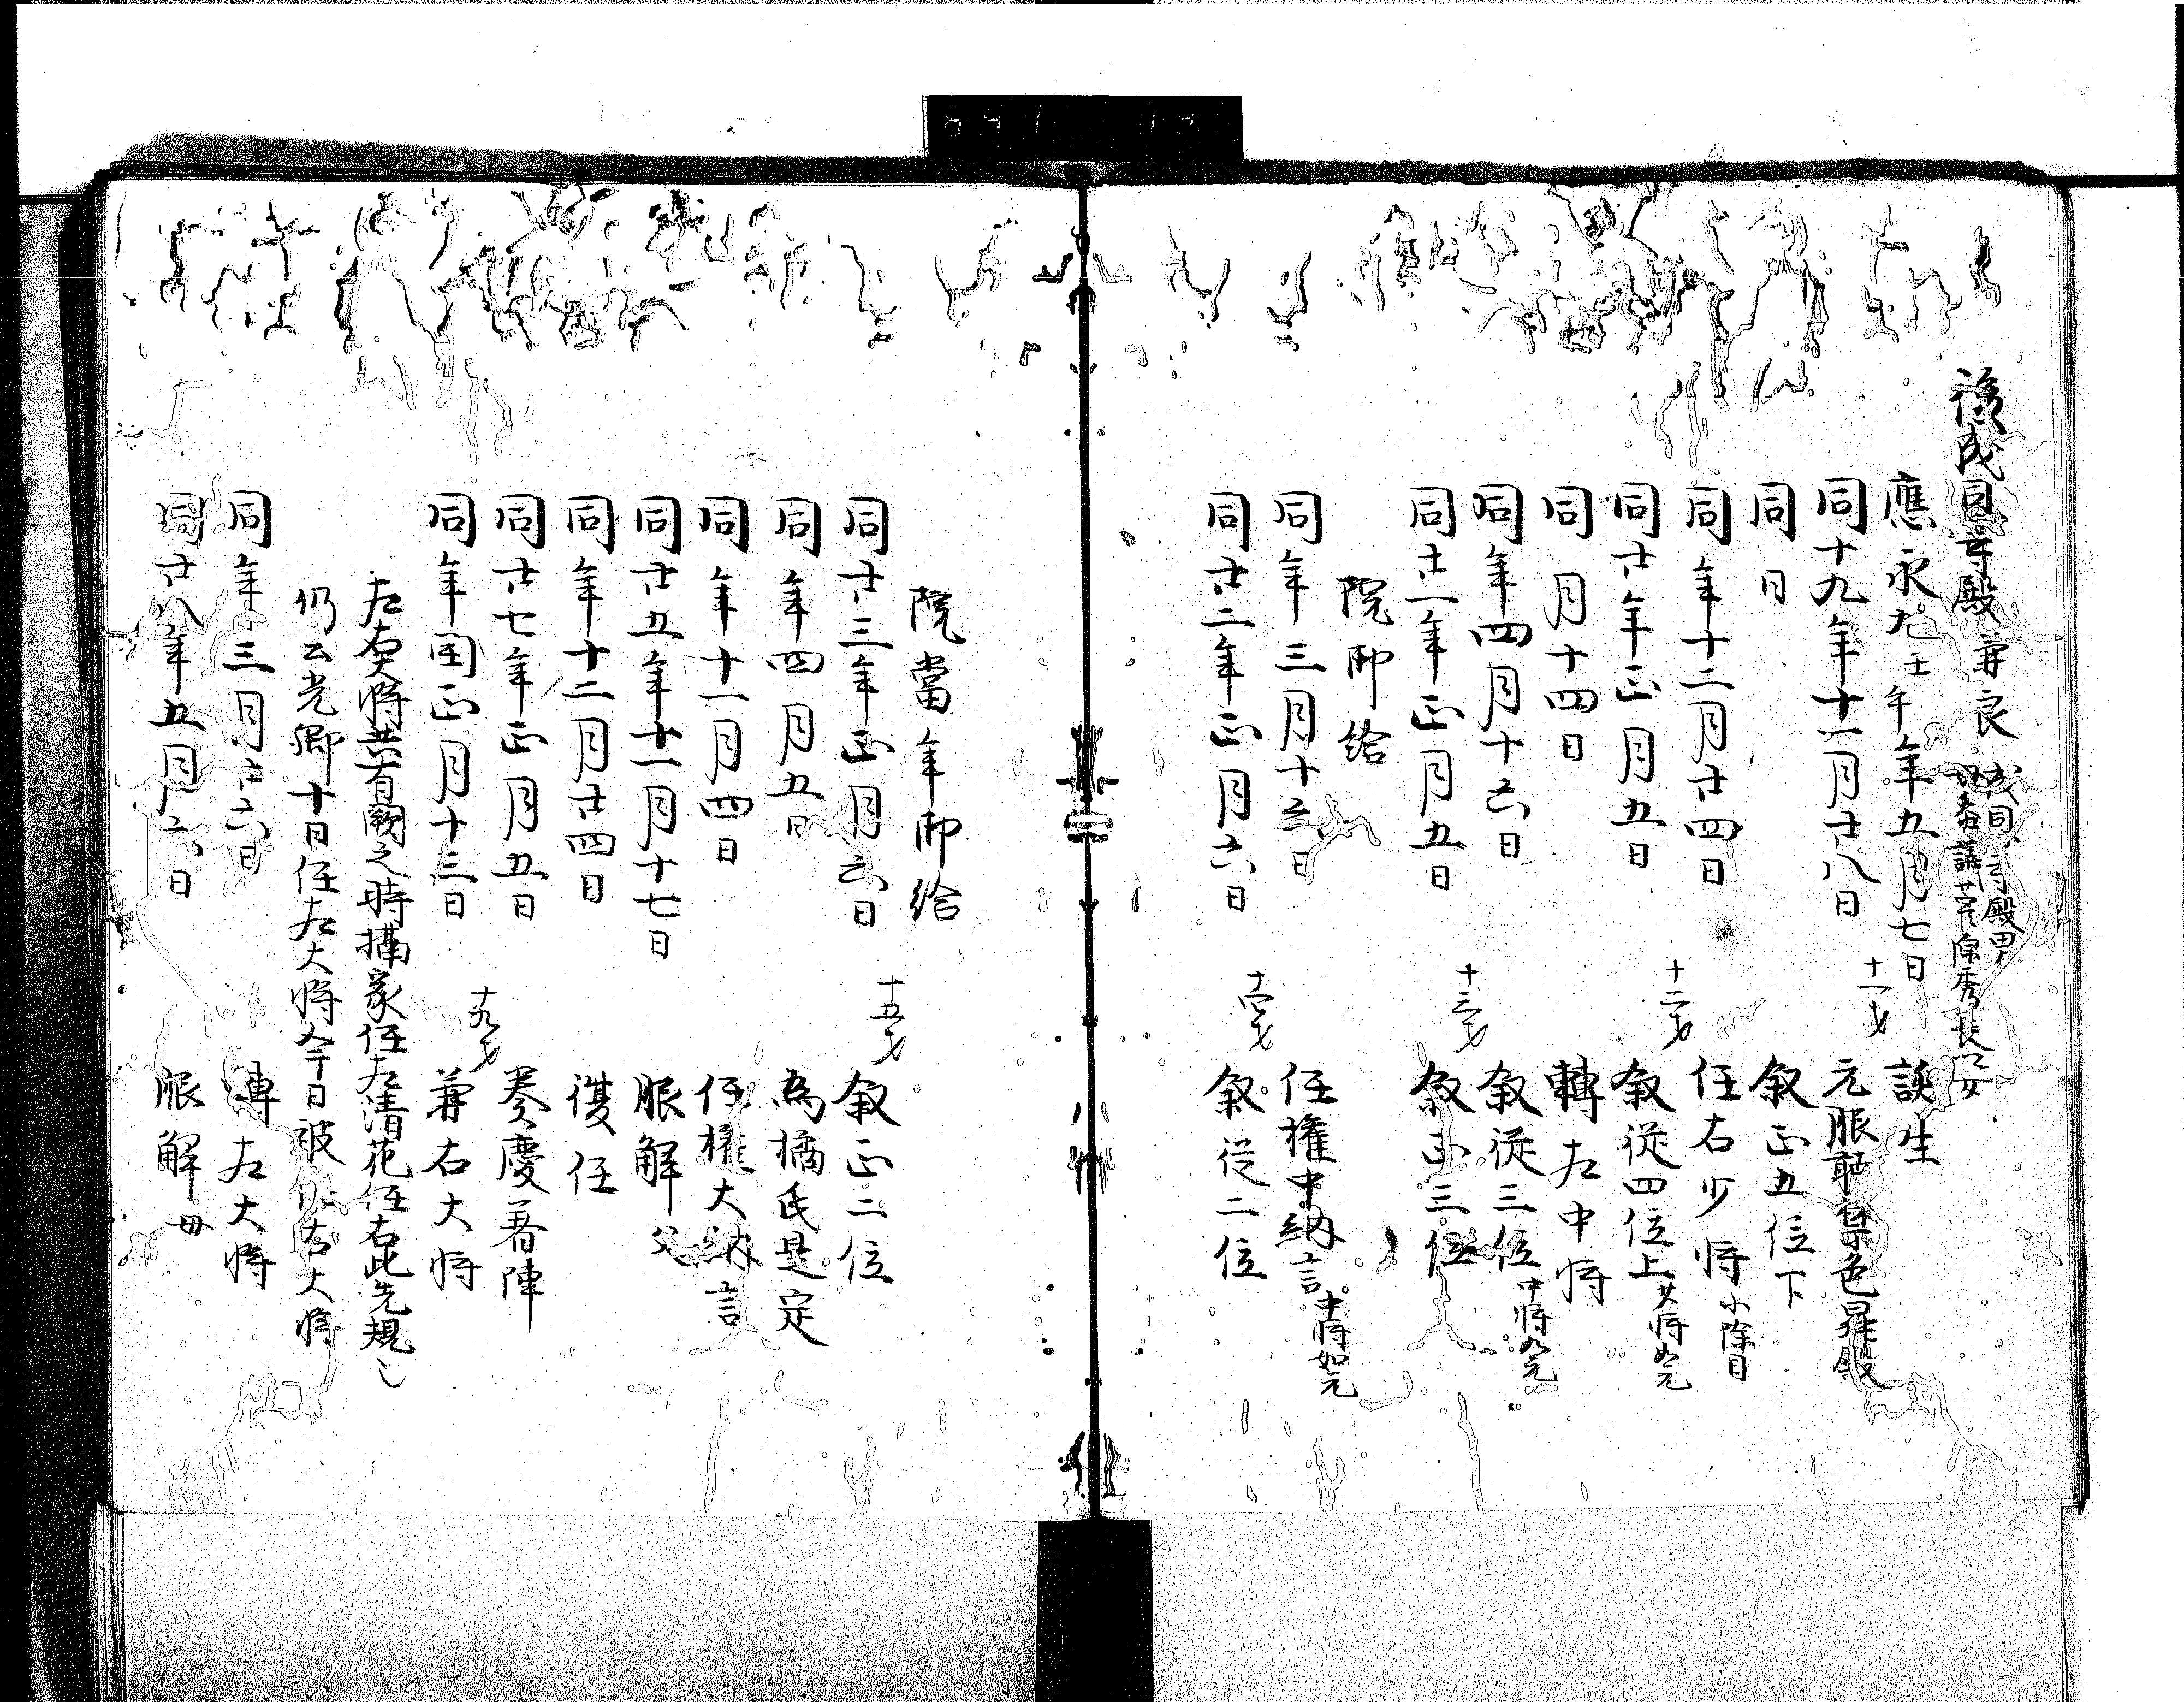 後成恩寺殿兼良 成恩寺殿男
母参議菅原秀長女
應永九壬午年五月七日 誕生
同十九年十一月廿八日 十一才 元服聴禁色昇殿
同日 叙正五位下
同年十二月廿四日 任右少将小除目
同廿年正月五日 十二才 叙従四位上少将如元
同月十四日 轉左中将
同年四月十六日 叙従三位中将如元
同廿一年正月五日 十三才 叙正三位
院御給
同年三月十六日 任権中納言中将如元
同廿二年正月六日 十四才 叙従二位
院當年御給
同廿三年正月六日 十五才 叙正二位
同年四月五日 為橘氏是定
同年十一月四日 任権大納言
同廿五年十一月十七日 服解父
同年十二月廿四日 復任
同廿七年正月五日 奏慶著陣
同年閏正月十三日 十九才 兼右大将
左右大将共有闕之時摂家任左清花任右此先規也
仍公光卿十日任左大将今日被 右大将
同年三月十六日 轉左大将
同廿八年五月六日 服解母